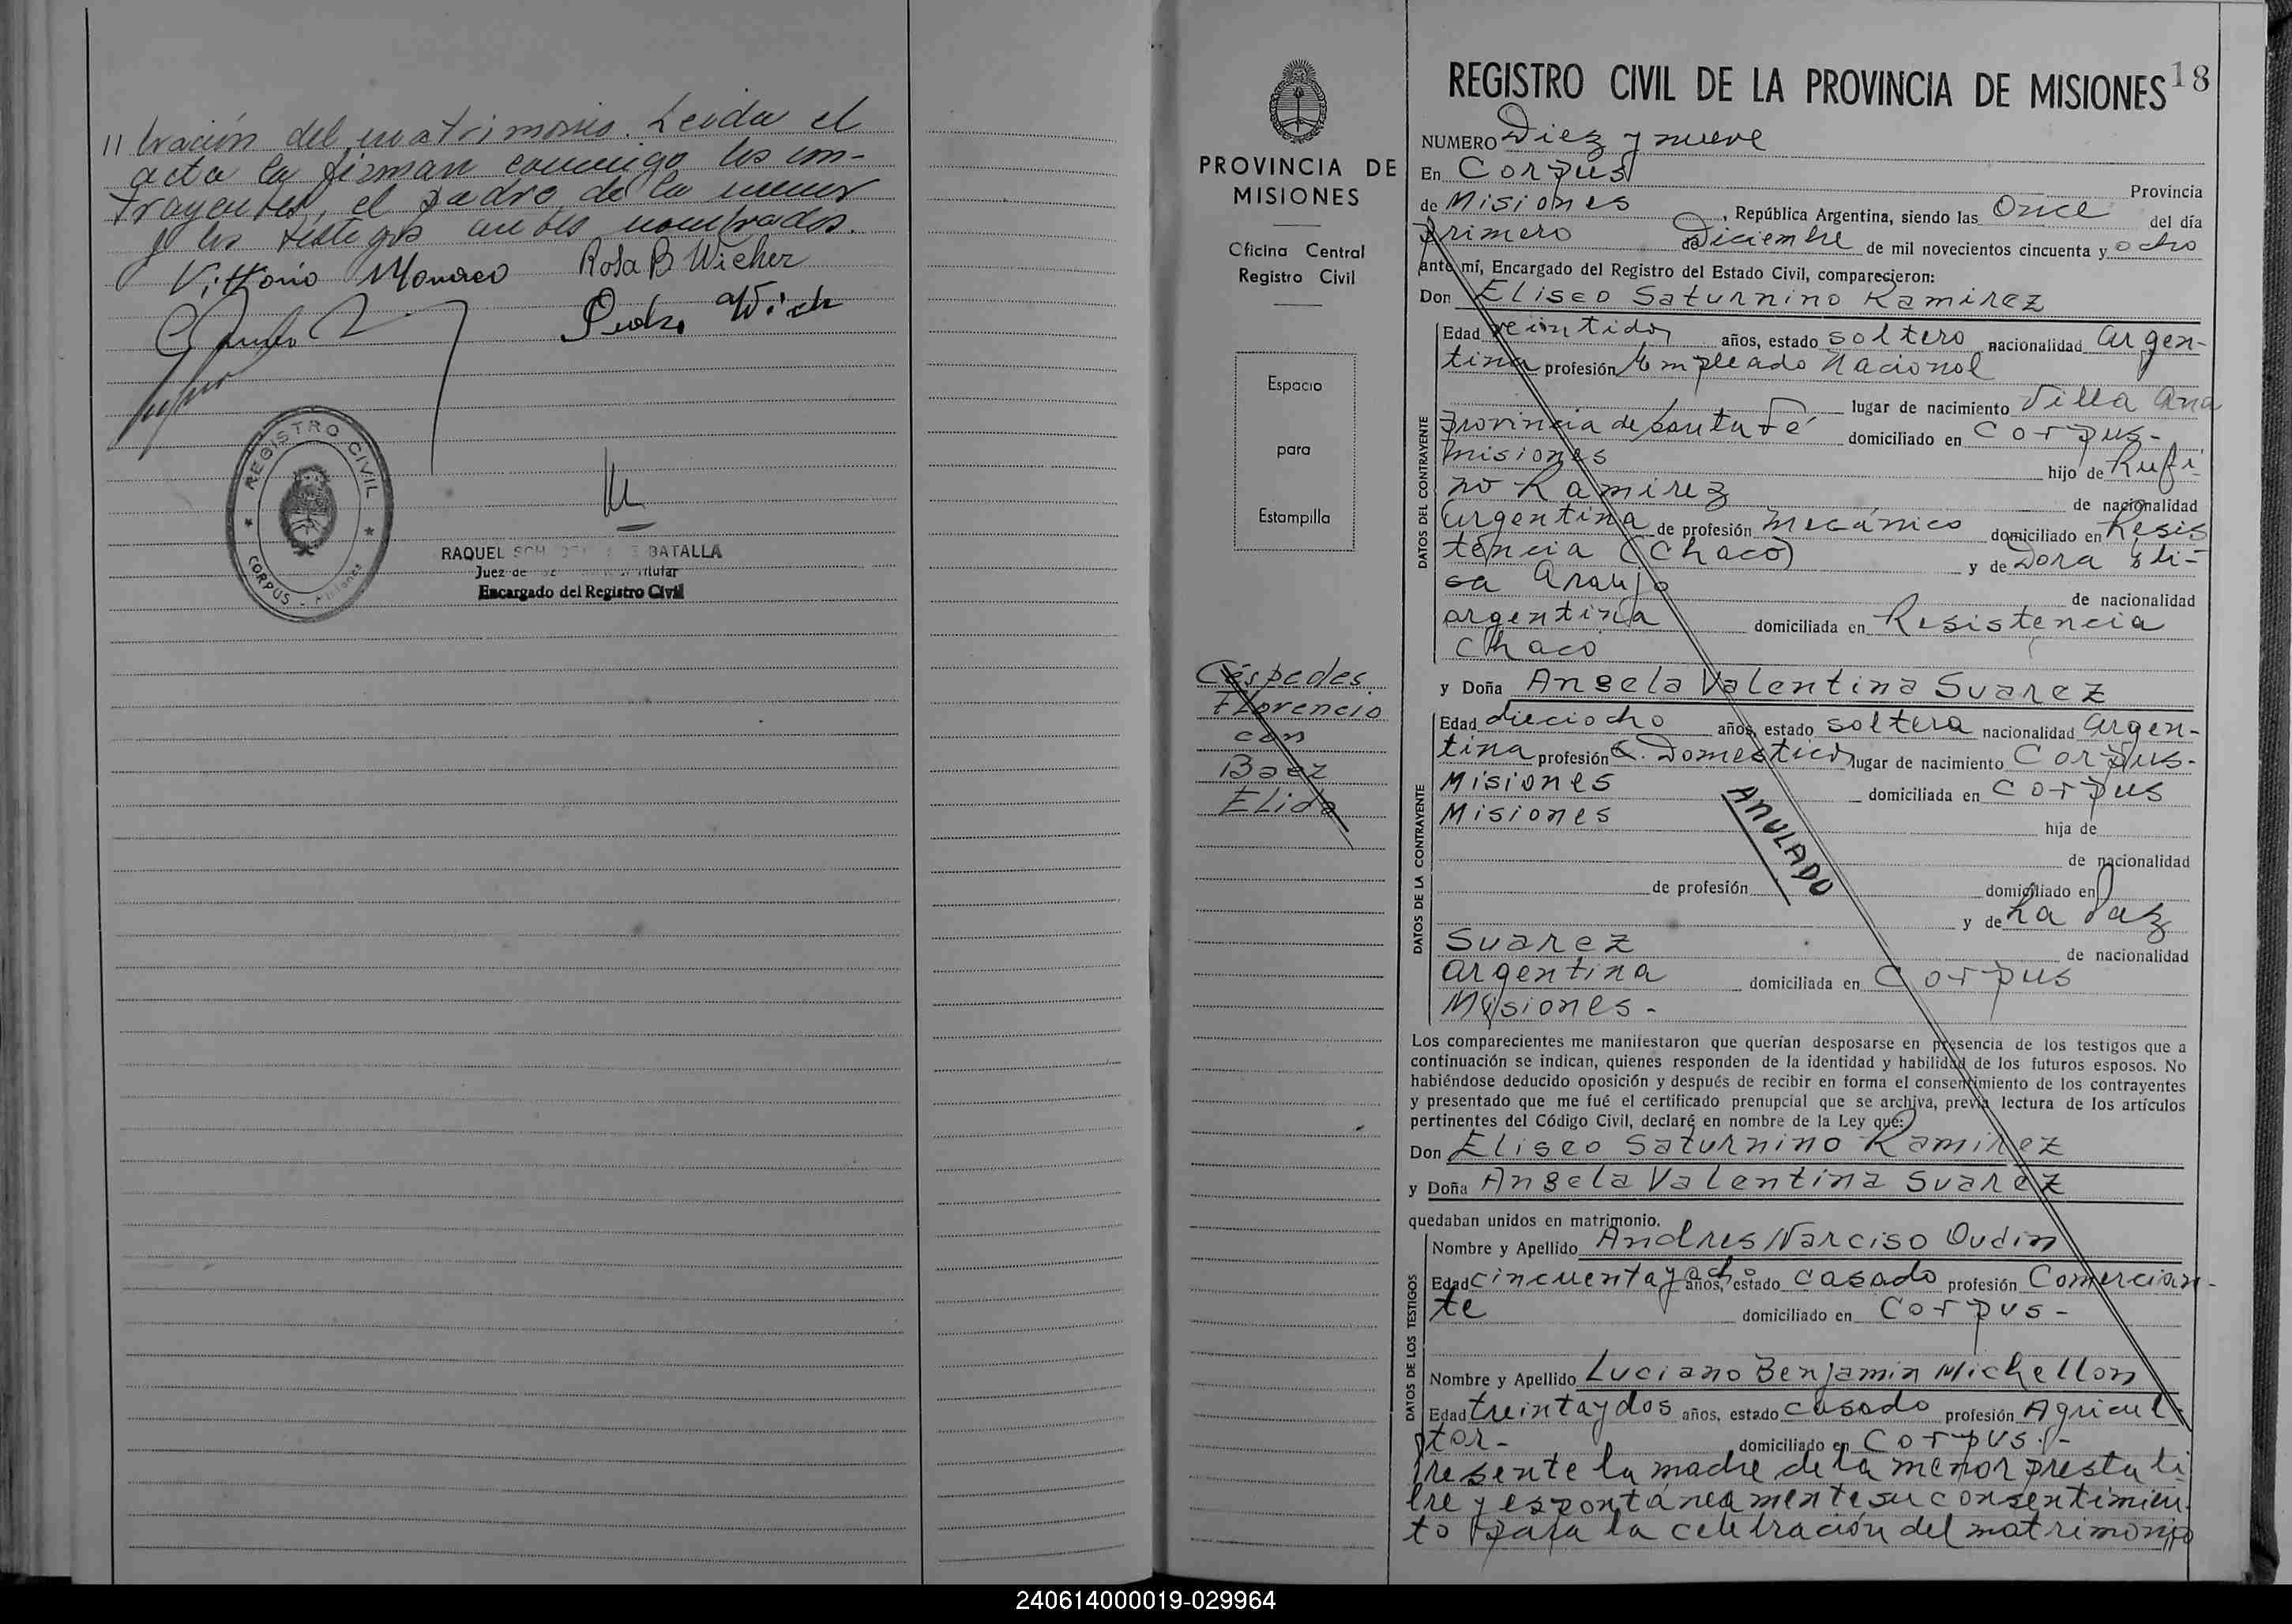 // bración del matrimonio. Leida el
acta la firman conmigo los con-
trayentes, el padre de la menor
y los testigos antes nombrados.
Vittorio Monaco Rosa B Wicher
Pedro Wich
REGISTRO CIVIL
CORPUS - Misiones
RAQUEL BATALLA
Juez de Titular
Encargado del Registro Civil
PROVINCIA DE
MISIONES
Oficina Central
Registro Civil
Espacio
para
Estampilla
Céspedes
Florencio
con
Baez
Elida
REGISTRO CIVIL DE LA PROVINCIA DE MISIONES 18
NUMERO Diez y nueve
En Corpus Provincia
de Misiones, República Argentina, siendo las Once del día
primero de Diciembre de mil novecientos cincuenta y ocho
ante mí, Encargado del Registro del Estado Civil, comparecieron:
Don Eliseo Saturnino Ramirez
DATOS DEL CONTRAYENTE
Edad veintidos años, estado soltero nacionalidad argen-
tina profesión Empleado Nacional
lugar de nacimiento Villa Ana
provincia de Santa Fé domiciliado en Corpus-
Misiones hijo de Rufi
no Ramirez de nacionalidad
argentina de profesión mecánico domiciliado en Resis
tencia (Chaco) y de Dora Eli-
sa Araujo de nacionalidad
argentina domiciliada en Resistencia
Chaco
y Doña Angela Valentina Suarez
DATOS DE LA CONTRAYENTE
Edad dieciocho años, estado soltera nacionalidad argen-
tina profesión Q. Domestico lugar de nacimiento Corpus-
Misiones domiciliada en Corpus
Misiones hija de
de nacionalidad
de profesión domiciliado en
ANULADO
y de La Paz
Suarez de nacionalidad
argentina domiciliada en Corpus
Misiones-
Los comparecientes me manifestaron que querían desposarse en presencia de los testigos que a
continuación se indican, quienes responden de la identidad y habilidad de los futuros esposos. No
habiéndose deducido oposición y después de recibir en forma el consentimiento de los contrayentes
y presentado que me fué el certificado prenupcial que se archiva, previa lectura de los artículos
pertinentes del Código Civil, declaré en nombre de la Ley que:
Don Eliseo Saturnino Ramirez
y Doña Angela Valentina Suarez
quedaban unidos en matrimonio.
DATOS DE LOS TESTIGOS
Nombre y Apellido Andres Narciso Oudin
Edad cincuenta y ocho años, estado casado profesión Comercian-
te domiciliado en Corpus-
Nombre y Apellido Luciano Benjamin Michellon
Edad treinta y dos años, estado casado profesión Agricul-
tor- domiciliado en Corpus.-
Presente la madre de la menor presta li
bre y espontáneamente su consentimien-
to para la celebración del matrimonio
240614000019-029964